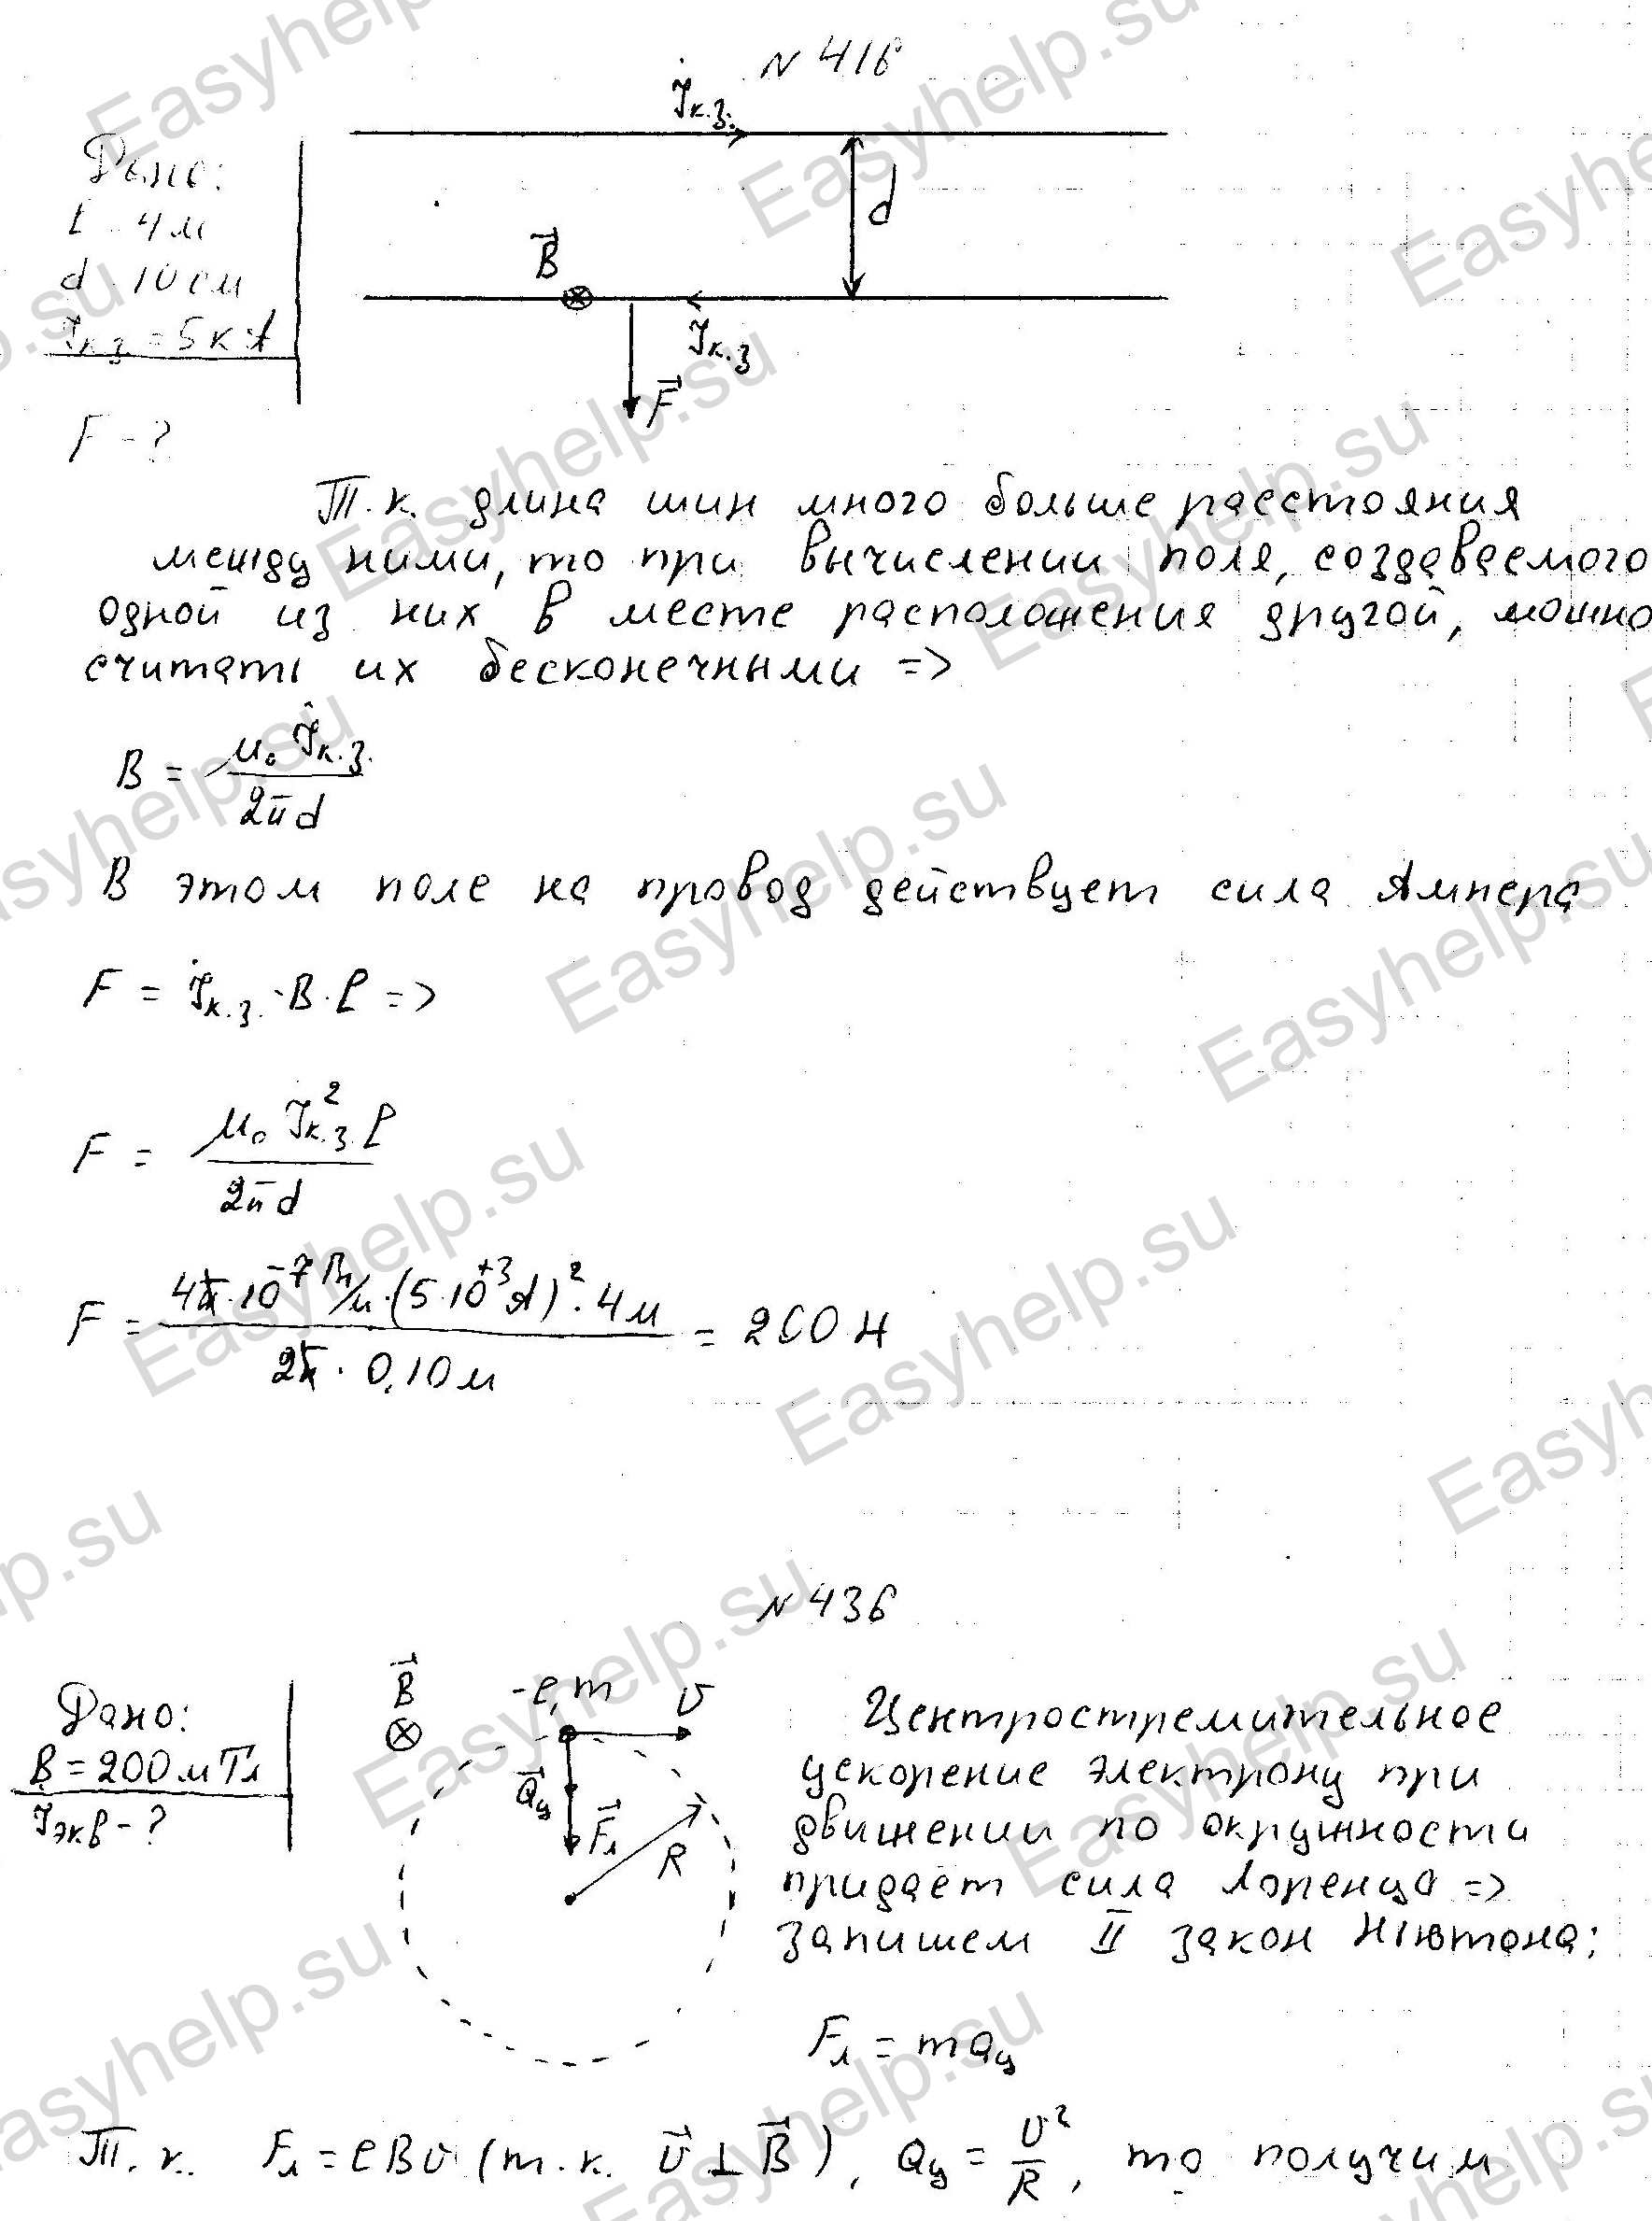 N 416
Дано:
l = 4 м
d = 10 см
Iк.з. = 5 кА
F - ?
Iк.з.
d
B
Iк.з
F
Т.к. длина шин много больше расстояния
между ними, то при вычислении поля, создаваемого
одной из них в месте расположения другой, можно
считать их бесконечными =>
B = μ₀ Iк.з. / 2πd
В этом поле на провод действует сила Ампера
F = Iк.з. · B · l =>
F = μ₀ I²к.з. l / 2πd
F = 4π·10⁻⁷ Гн/м · (5·10⁺³ А)² · 4 м / 2π · 0,10 м = 200 Н
N 436
Дано:
B = 200 мТл
Iэкв - ?
B
-e, m
v
aц
Fл
R
Центростремительное
ускорение электрону при
движении по окружности
придает сила Лоренца =>
запишем II закон Ньютона:
Fл = maц
Т.к. Fл = eBv (т.к. v ⊥ B), aц = v²/R, то получим
Easyhelp.su